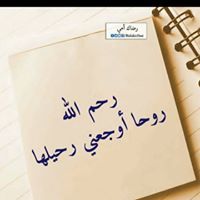 رضاك أمي
رحم الله
روحا أوجعني رحيلها